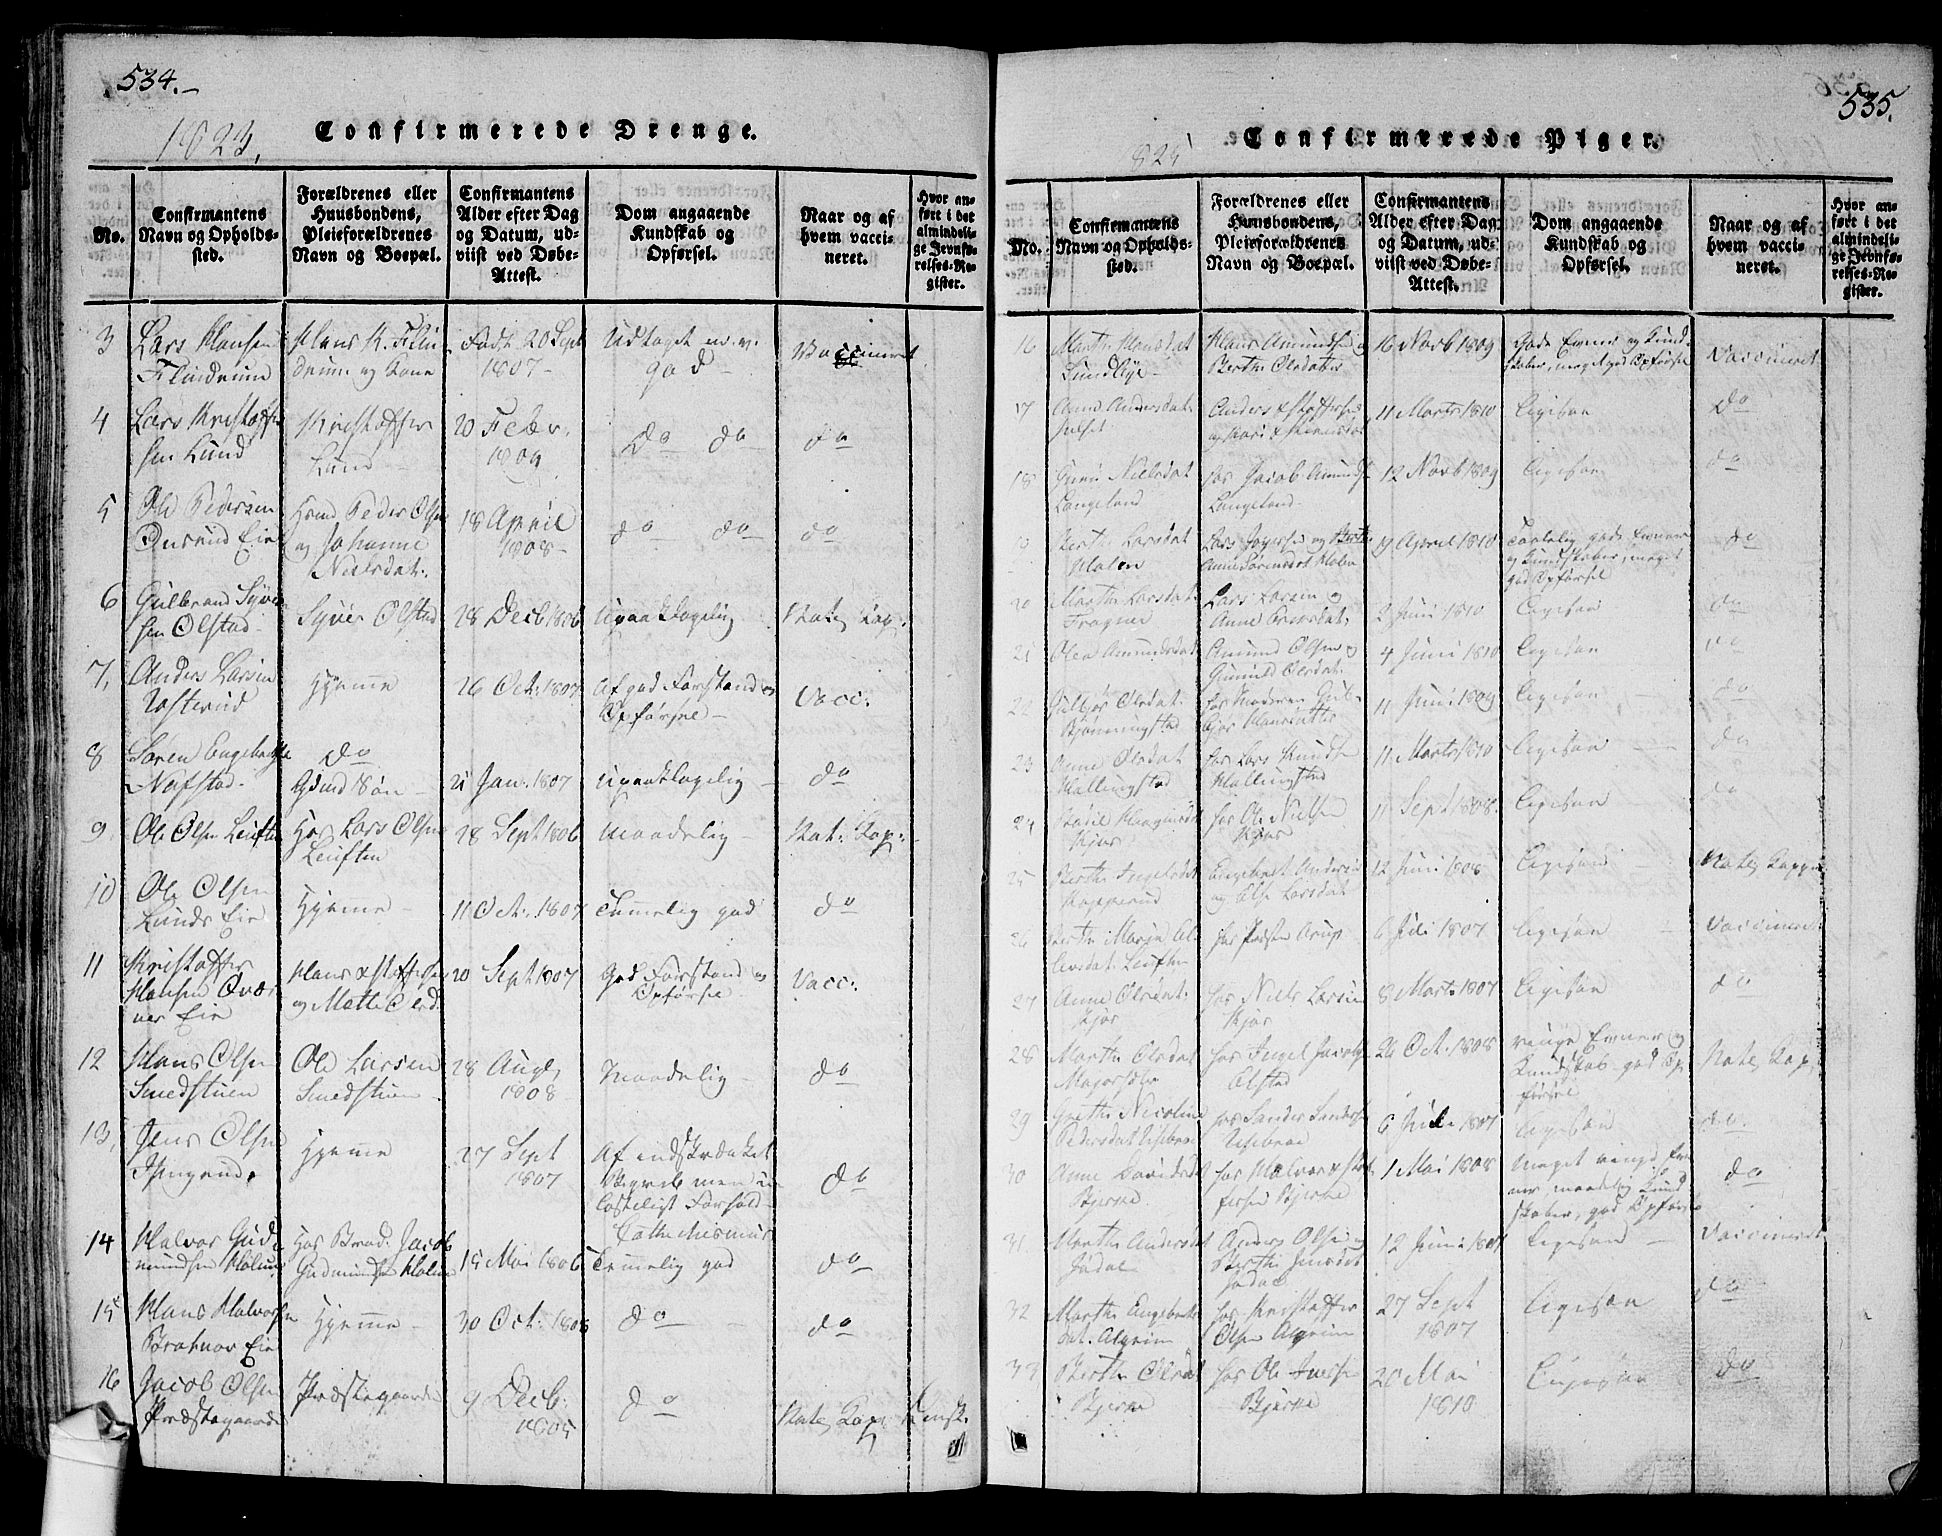 534.
1823.
Confirmerede Drenge.
No.
Confirmantens
Navn og Opholds-
sted.
Forældrenes eller
Huusbondens,
Pleieforældrenes
Navn og Boepæl.
Confirmantens
Alder efter Dag
og Datum, ud-
viist ved Døbe-
Attest.
Dom angaaende
Kundskab og
Opførsel.
Naar og af
hvem vacci-
neret.
Hvor an-
ført i det
almindeli-
ge Jevnfø-
relses-Re-
gister.
3
Lars Hansen
Flindrum
Hans K. Flin
drum og Kone
Født 20 Sept
1807
Udtaget
god
Vaccineret
4
Lars Kristoffer
sen Lund
Kristoffer
Lund
20 Febr.
1809
do do
do
5
Ole Pedersen
Eie
Peder Olsen
og Johanne
Nielsdat:
18 April
1808
do do
do
6
Gulbrand Syver
sen Olstad
Syver Olstad
28 Decb 1806
upaaklagelig
Nat. Kop.
7,
Anders Larsen
Hjemme
26 Oct: 1807
Af god Forstand og
Opførsel
Vacc:
8
Søren Engebretse
Nafstad
do
21 Jan: 1807
upaaklagelig
do
9.
Ole Olsen Leuften
Hos Lars Olsen
Leuften
28 Sept 1806
maadelig
Nat: Kop:
10
Ole Olsen
Lunds Eie
Hjemme
11 Oct. 1807
Temmelig god
do
11
Kristoffer
Hansen Qvær
ner Eie
Hans Xstoffersen
og Mette Olsd.
20 Sept 1807
God Forstand og
Opførsel
Vacc:
12
Hans Olsen
Smedstuen
Ole Larsen
Smedstuen
28 Aug,
1808
Maadelig
do
13,
Jens Olsen
Hjemme
27 Sept
1807
Af indskrænket
Begreb men
Forhold
do
14
Halvor Gud
mundsen Holum
Hos Brod. Jacob
Gudmundsen Holum
15 Mai 1806
Temmelig god
do
15
Hans Halvorsen
Eie
Hjemme
30 Oct: 1808
do
do
16
Jacob Olsen
Præstegaarden
Præstegaarden
9 Decb:
1805
do
Nat. Kop
535.
Confirmerede Piger.
No.
Confirmantens
Navn og Opholds-
sted.
Forældrenes eller
Huusbondens,
Pleieforældrenes
Navn og Boepæl.
Confirmantens
Alder efter Dag
og Datum, ud-
viist ved Døbe-
Attest.
Dom angaaende
Kundskab og
Opførsel.
Naar og af
hvem vacci-
neret.
Hvor an-
ført i det
almindeli-
ge Jevnfø-
relses-Re-
gister.
16
Marthe Hansdat
Lundbye
Hans Amundsen og
Berthe Olsdatter
16 Novb 1809
Gode Evner og Kund
skaber, meget god Opførsel
Vaccineret
17
Anne Andersdat.
Anders Xstoffersen
11 Marts 1810
Ligesaa
do
18
Nielsdat
Langeland
hos Jacob Amundsen
Langeland
12 Novb 1809
Ligesaa
do
19
Berthe Larsdat
Holen
Lars
9 April 1810
Temmelig gode Evner
og Kundskaber, meget
god Opførsel
do
20
Marthe Larsdat.
Fragner
Lars Larsen og
Anne
2 Juni 1810
Ligesaa
do
21
Olea Amundsdat.
Amund Olsen og
Gunnild Olsdat.
4 Juni 1810
Ligesaa
do
22
Olsdat.
hos Moderen
11 Juni 1809
Ligesaa
do
23
Anne Olsdat
Hallingstad
hos Lars Knudsen
Hallingstad
11 Marts 1810
Ligesaa
do
24
Kjos
hos Ole Nielsen
Kjos
11 Sept 1808.
Ligesaa
do
25
Berthe Ingelsdat
Kopperud
Engebret Andersen
og Else Larsdat
12 Juni 1808
Ligesaa
Nat. Kopper
26
Berthe Maria
Leuften
hos Præsten Arup
6 Juli 1807
Ligesaa
Vaccineret
27
Anne Olsdat.
Kjos
hos Niels Larsen
Kjos
8 Mart. 1807
Ligesaa
do
28
Marthe Olsdat
hos Ingel Jacobsen
Olstad
26 Oct. 1808
ringe Evner og
Kundskab god Op
førsel
Nat. Kop.
29
Grethe Nicoline
Pedersdat
hos Sander Sandersen
6 Juli 1807
Ligesaa
do.
30
Anne Davidsdat
Bjerke
hos Halvor Xstof
fersen Bjerke
1 Mai 1808
Meget ringe Ev
ner, maadelig Kund
skaber, god Opførsel
do
31
Marthe Andersdat
Anders Olsen og
Berthe Jensdat
12 Juni 1807
Ligesaa
Vaccineret
32
Marthe Engebrets
dat. Algrim
hos Kristoffer
Olsen Algrim
27 Sept
1807
Ligesaa
do
33
Berthe Olsdat
Bjerke
hos Ole Jensen
Bjerke
20 Mai
1810
Ligesaa
do